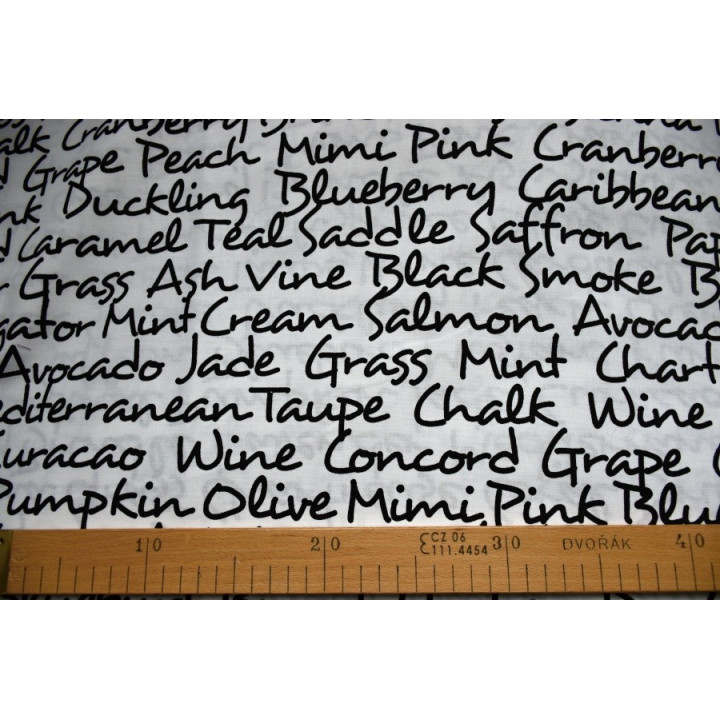 alk Cranberry
Grape Peach Mimi Pink Cranberry
nk Duckling Blueberry Caribbean
Caramel Teal Saddle Saffron Pap
r Grass Ash Vine Black Smoke B
gator Mint Cream Salmon Avocado
Avocado Jade Grass Mint Chart
editerranean Taupe Chalk Wine
uracao Wine Concord Grape
Pumpkin Olive Mimi Pink Blu
1 0 2 0 CZ 06 3 0 DVOŘÁK 4 0
111.4454